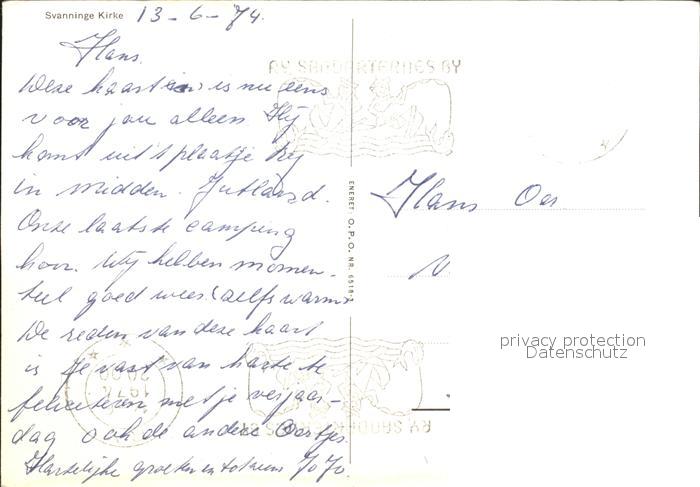 Svanninge Kirke 13-6-74.
Hans.
Deze kaart is nu eens
voor jou alleen Hij
komt uit 't plaatje Ry
in midden. Jutland.
Onze laatste camping
hoor. Wij hebben momen-
teel goed weer (zelfs warm)
De reden van deze kaart
is je vast van harte te
feliciteren met je verjaar-
dag ook de andere Oertjes.
Hartelijke groeten en tot ziens JoJo.
ENERET: O.P.O. NR. 6518-3
RY SØBADERNES BY
Hans Oer
privacy protection
Datenschutz
1974